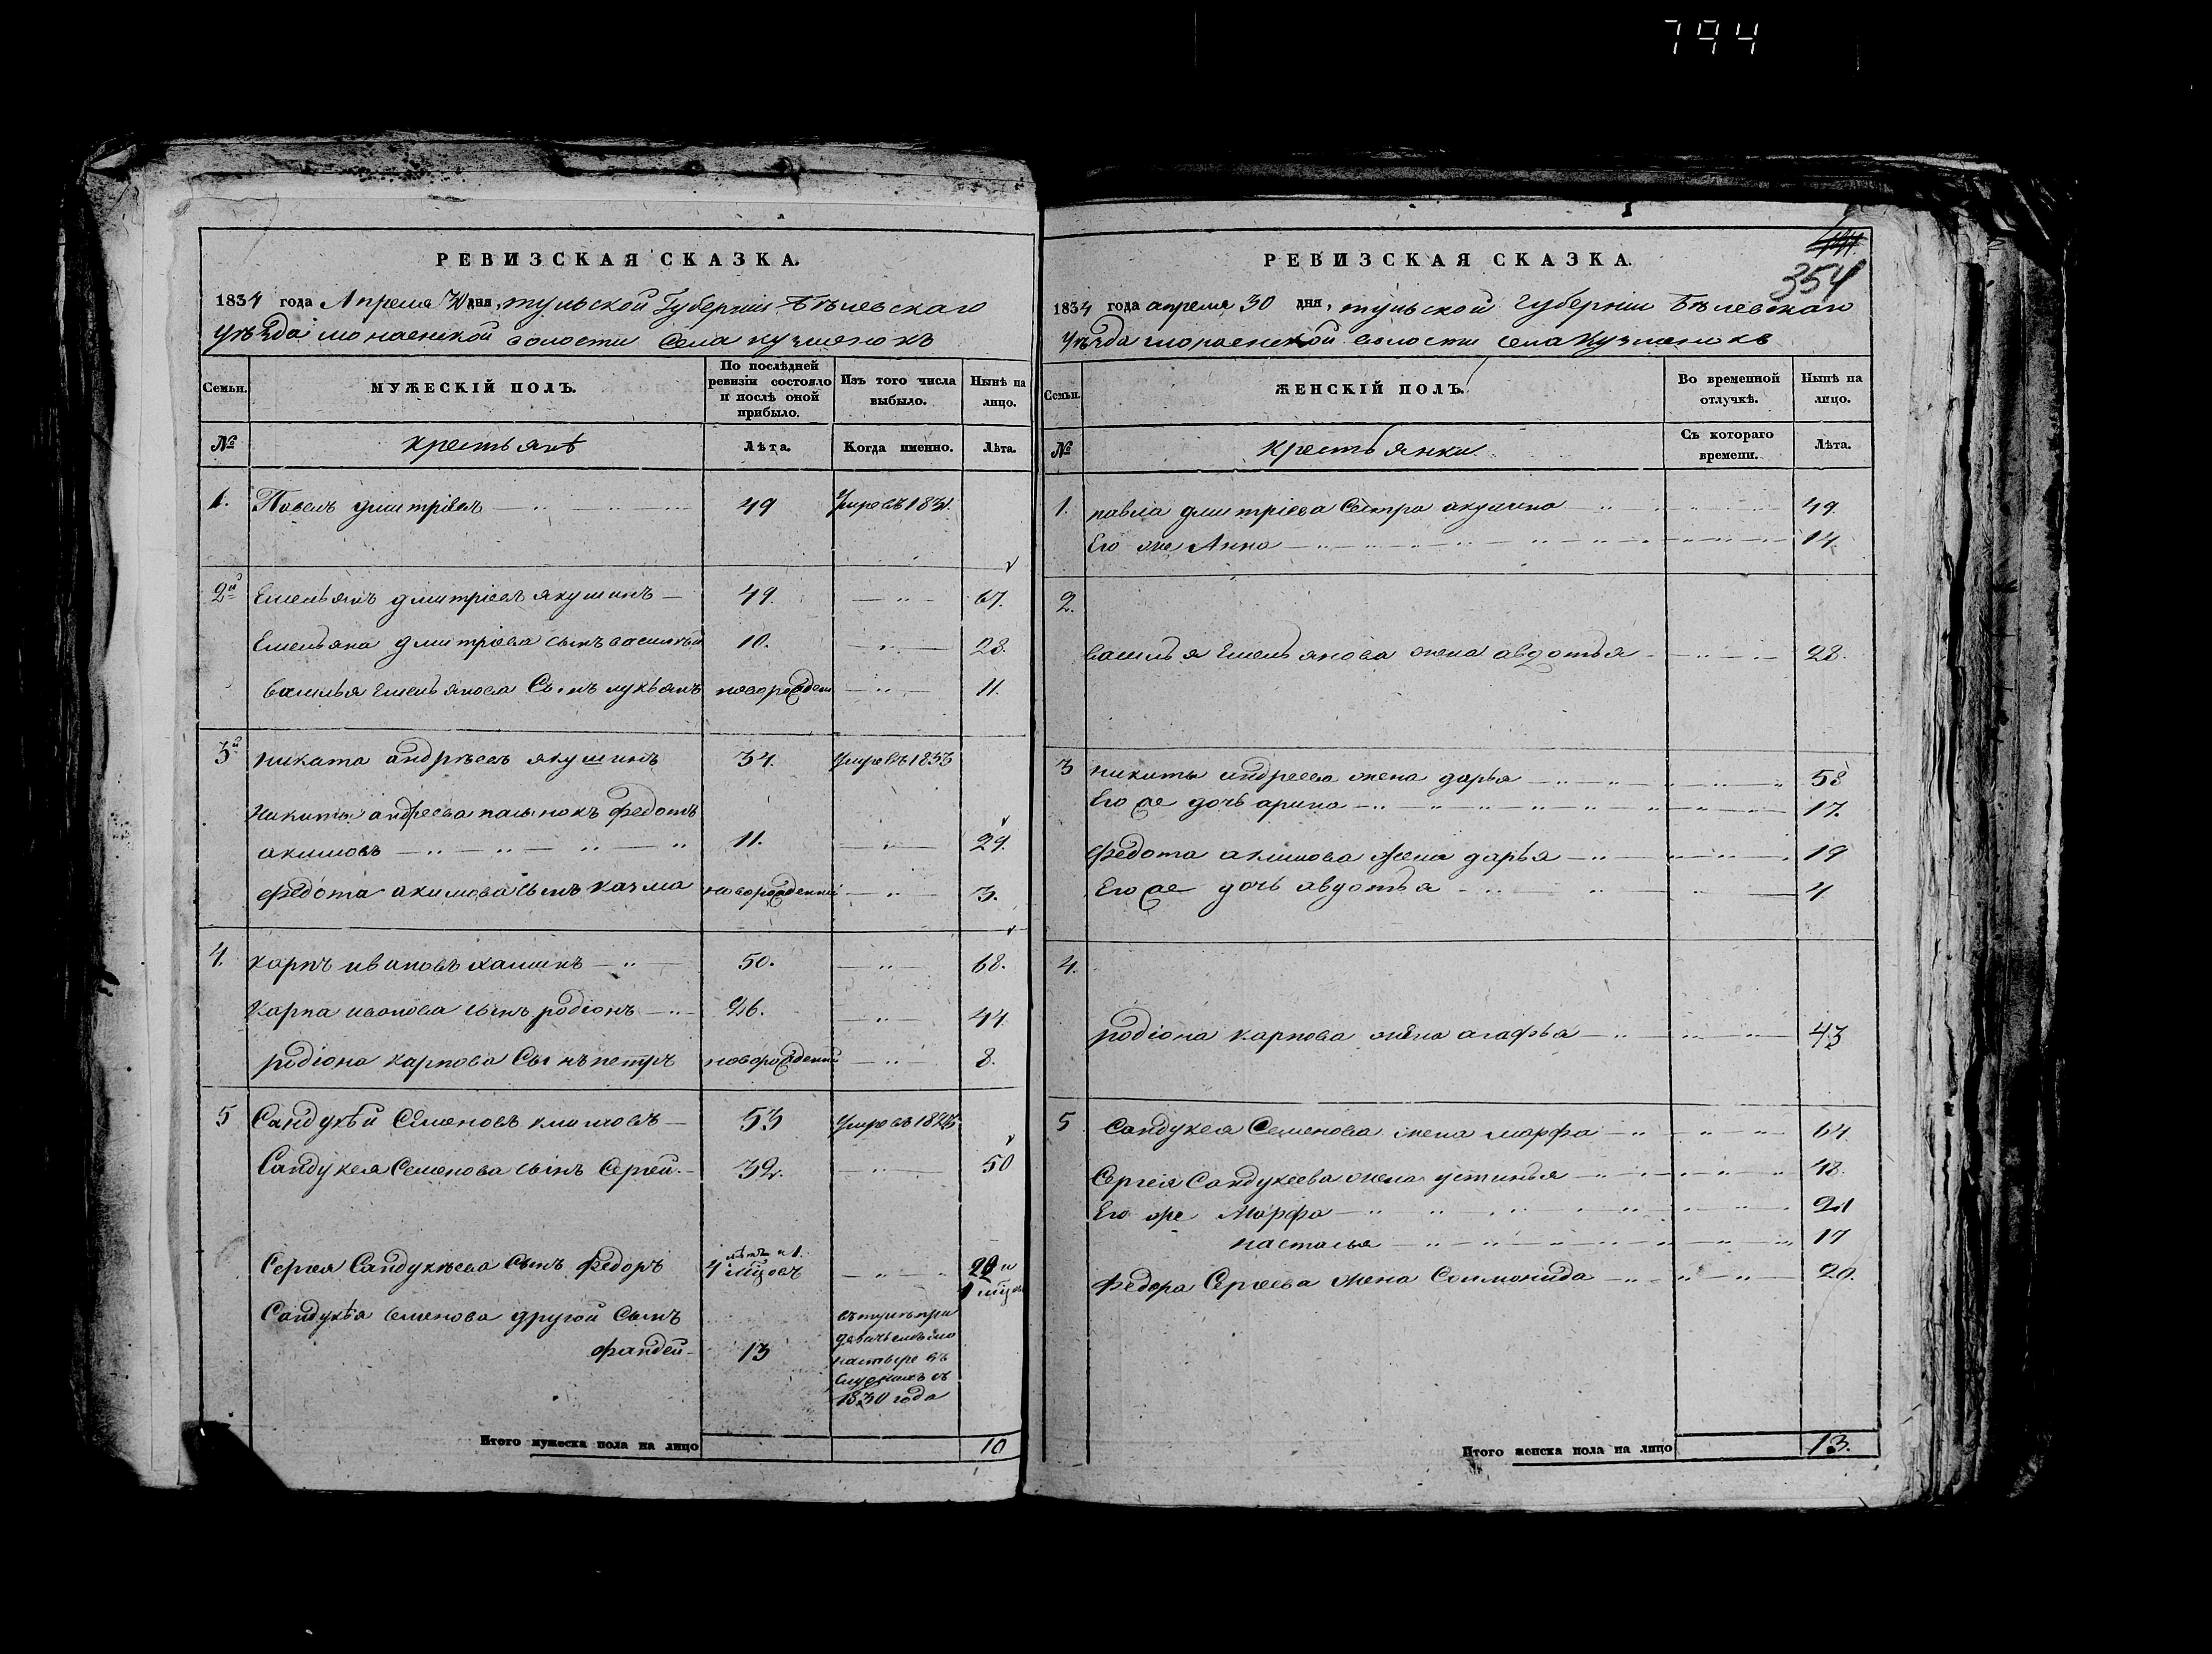 794
РЕВИЗСКАЯ СКАЗКА.
1834 года Апреля 30 дня, тульской Губерніи Бѣлевскаго
уѣзда монаенской волости села кузменокъ
Семьи.
МУЖЕСКІЙ ПОЛЪ.
По послѣдней ревизіи состояло и послѣ оной прибыло.
Изъ того числа выбыло.
Нынѣ на лицо.
№
крестьянѣ
Лѣта.
Когда именно.
Лѣта.
1. Павелъ дмитріевъ 49 умре въ 183
2й Емельянъ дмитріевъ якушинъ 49. 67.
Емельяна дмитріева сынъ василѣй 10. 28.
василья Емельянова Сынъ лукьянъ новорожден 11.
3й никита андрѣевъ якушинъ 34. умре въ 1833
Никиты андреева пасынокъ федотъ
акимовъ 11. 29.
федота акимова сынъ казма новорожденний 3.
4. карпъ ивановъ 50. 68.
Карпа иванова сынъ родіонъ 26. 44
родіона карпова Сынъ петръ новорожденни 8.
5 Сандукѣй Семеновъ 53 умре въ 182
Сандукея Семенова сынъ Сергей 32. 50
лѣтъ и 1.
Сергея Сандукѣева Сынъ Федоръ 4 мцовъ 20 и
1 мцъ
Сандукѣя семенова другой Сынъ
фандей 13
1830 года
Итого мужеска пола на лицо 10
354
РЕВИЗСКАЯ СКАЗКА.
1834 года апреля 30 дня, тульской Губерніи Бѣлевскаго
уѣзда монаенской волости села Кузменокъ
Семьи.
ЖЕНСКІЙ ПОЛЪ.
Во временной отлучкѣ.
Нынѣ на лицо.
№
крестьянки
Съ котораго времени.
Лѣта.
1. павла дмитріева Сестра акулина 49.
Его же Анна 14.
2.
василья Емельянова жена авдотья 28.
3 никиты андреева жена дарья 58
Его же дочь арина 17.
федота акимова жена дарья 19
Его же дочь авдотья 4
4.
родіона карпова жена агафья 43
5 Сандукея Семенова жена марфа 64
Сергея Сандукеева жена устинья 48.
Его же Марфа 21
настасья 17
Федора Сергеева жена Соломонида 20.
Итого женска пола на лицо 13.